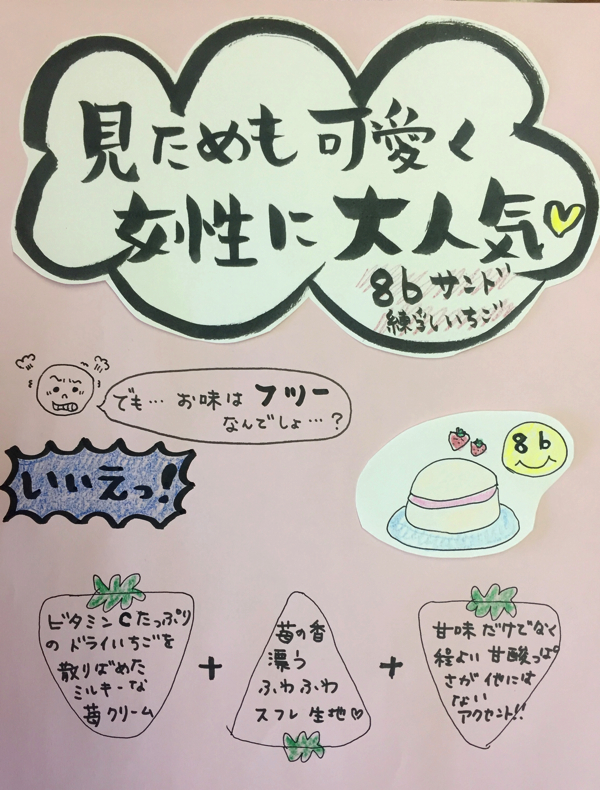 見ためも可愛く
女性に大人気
8bサンド
練乳いちご
でも… お味はフツー
なんでしょ…?
いいえっ!
8b
ビタミンCたっぷり
のドライいちごを
散りばめた
ミルキーな
苺クリーム
+
苺の香
漂う
ふわふわ
スフレ生地♡
+
甘味だけでなく
程よい甘酸っぱ
さが他には
ない
アクセント!!